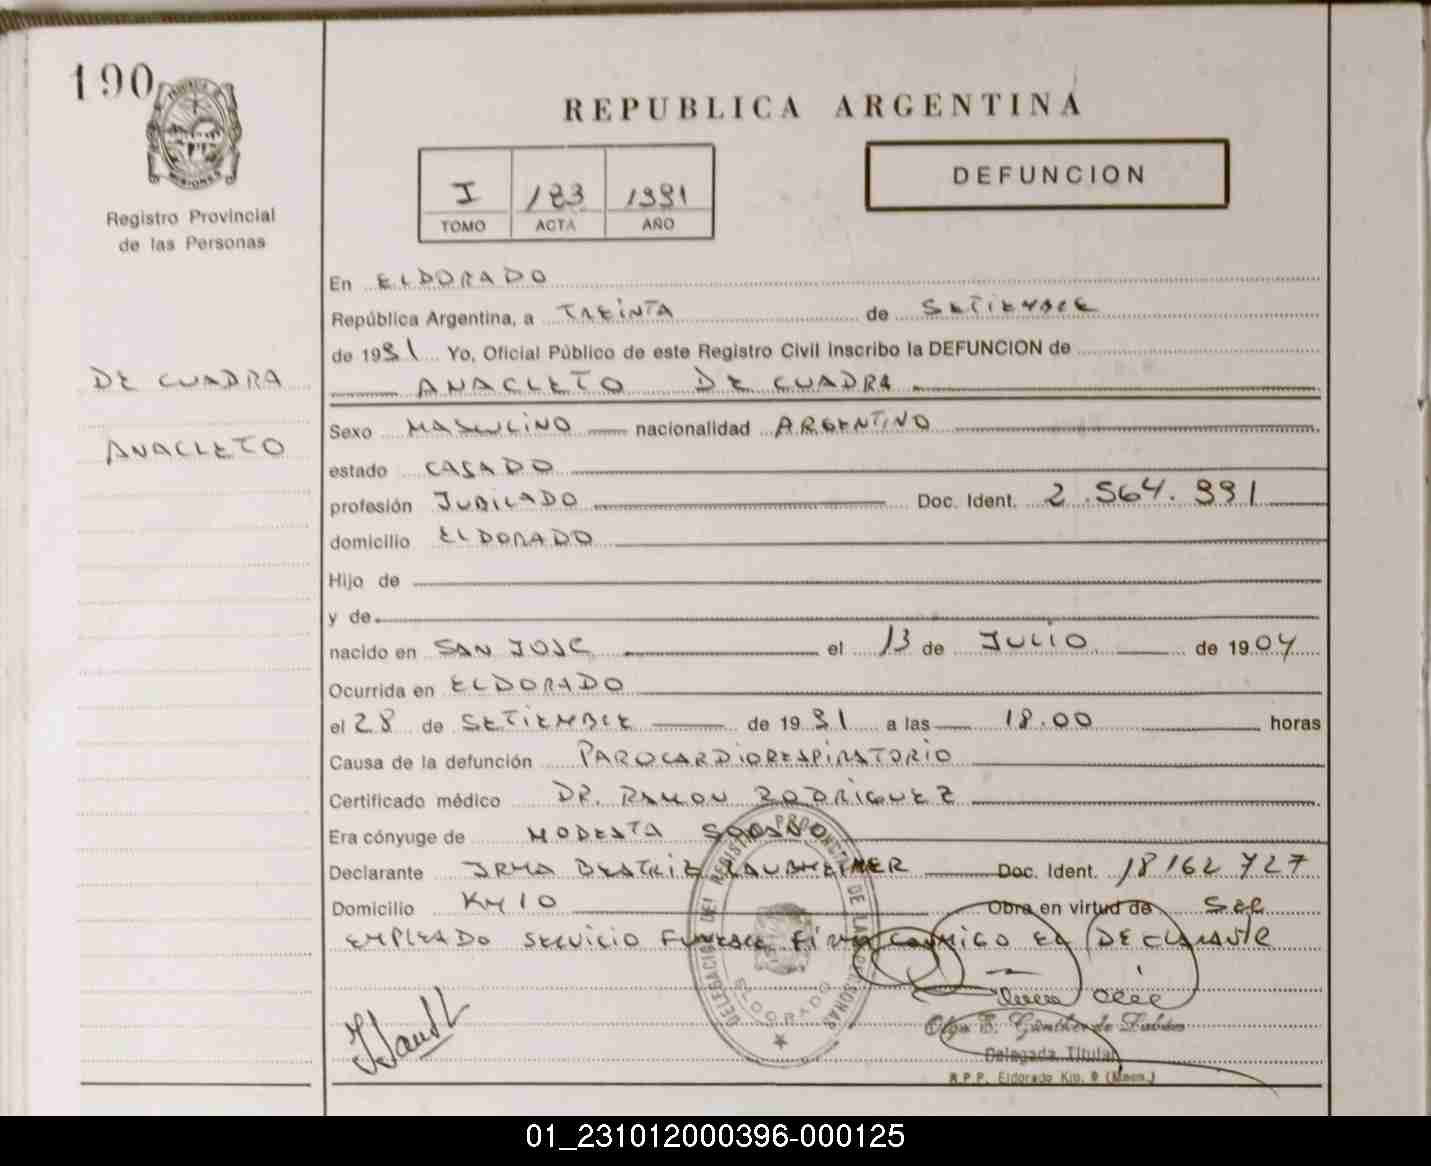 190
REPUBLICA ARGENTINA
DEFUNCION
I 183 1991
TOMO ACTA AÑO
MISIONES
Registro Provincial
de las Personas
En ELDORADO
República Argentina, a TREINTA de SETIEMBRE
de 1991 Yo, Oficial Público de este Registro Civil Inscribo la DEFUNCION de
DE CUADRA
ANACLETO DE CUADRA
Sexo MASCULINO nacionalidad ARGENTINO
ANACLETO
estado CASADO
profesión JUBILADO Doc. Ident. 2.564.991
domicilio ELDORADO
Hijo de
y de
nacido en SAN JOSE el 13 de JULIO de 1904
Ocurrida en ELDORADO
el 28 de SETIEMBRE de 1991 a las 18.00 horas
Causa de la defunción PAROCARDIORESPIRATORIO
Certificado médico DR. RAMON RODRIGUEZ
Era cónyuge de MODESTA
Declarante IRMA BEATRIZ Doc. Ident. 18162727
Domicilio KM 10 Obra en virtud de SER
EMPLEADO SERVICIO FUNEBRE FIRMA CONMIGO EL DECLARANTE
DELEGACION DEL REGISTRO PROVINCIAL DE LAS PERSONAS
ELDORADO
Olga E. Günther de
Delegada Titular
R.P.P. Eldorado Km. 9 (Mnes.)
01_231012000396-000125